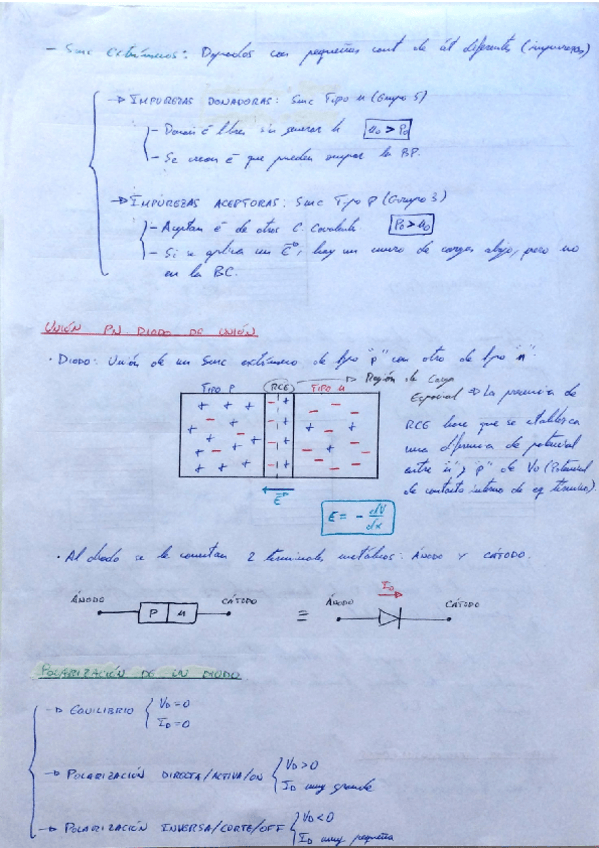 - Smc Extrínsecos: Dopados con pequeñas cant de át diferentes (impurezas)
→ IMPUREZAS DONADORAS: Smc Tipo n (Grupo 5)
- Donan ē libres sin generar h n₀ > P₀
- Se crean ē que pueden ocupar la BP.
→ IMPUREZAS ACEPTORAS: Smc Tipo P (Grupo 3)
- Aceptan ē de otros C. Covalente P₀ > n₀
- Si se aplica un E, hay un de cargas abajo, pero no
en la BC.
UNIÓN PN. DIODO DE UNIÓN
· DIODO: Unión de un Smc extrínseco de tipo "p" con otro de tipo "n"
TIPO P RCE TIPO N → Región de Carga
Espacial ⇒ La presencia de
RCE hace que se establezca
una diferencia de potencial
entre "n" y "p" de V₀ (Potencial
de contacto interno de eq térmico).
E
E = - dV/dx
· Al diodo se le conectan 2 terminales metálicos: ÁNODO Y CÁTODO.
ÁNODO P N CÁTODO ≡ ÁNODO I_D CÁTODO
POLARIZACIÓN DE UN DIODO
→ EQUILIBRIO { V_D = 0
I_D = 0
→ POLARIZACIÓN DIRECTA/ACTIVA/ON { V_D > 0
I_D muy grande
→ POLARIZACIÓN INVERSA/CORTE/OFF { V_D < 0
I_D muy pequeña